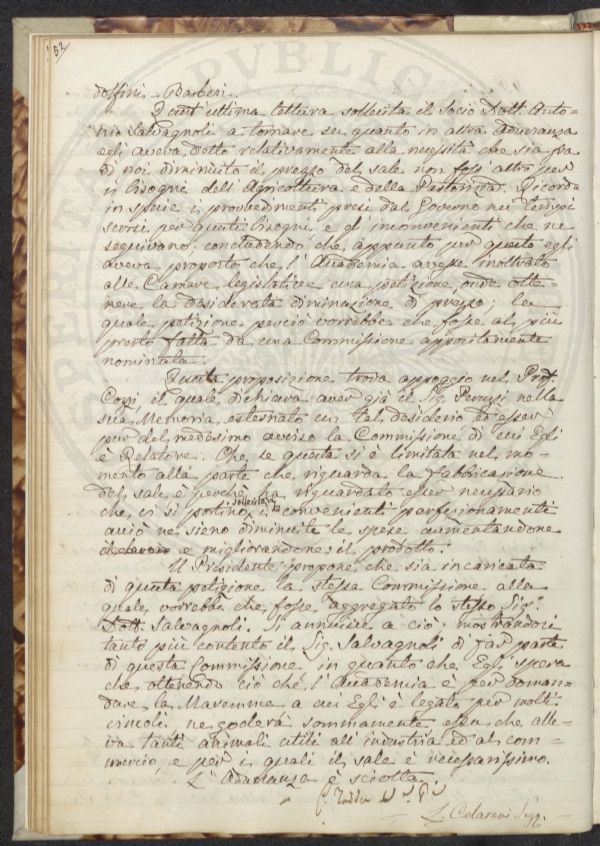 52
doffini - Barberi.
Quest'ultima lettura sollecita il Socio Dott. Anto-
nio Salvagnoli a tornare su quanto in altra adunanza
egli aveva detto relativamente alla necessità che sia fra
di noi diminuito il prezzo del sale non foss' altro per
i bisogni dell'Agricoltura e della Pastorizia. Ricorda
in specie i provvedimenti presi dal Governo nei tempi
scorsi per questi bisogni e gl' inconvenienti che ne
seguivano concludendo che appunto per questo egli
aveva proposto che l'Accademia avesse inoltrato
alle Camere legislative una petizione onde otte-
nere la desiderata diminuzione di prezzo; la
quale petizione perciò vorrebbe che fosse al più
presto fatta da una Commissione appositamente
nominata.
Questa proposizione trova appoggio nel Prof.
Cozzi, il quale dichiara aver già il Sig. Peruzzi nella
sua Memoria esternato un tal desiderio ed esser
pur del medesimo avviso la Commissione di cui Egli
è Relatore. Che, se questa si è limitata nel mo-
mento alla parte che riguarda la fabbricazione
del sale è perchè ha riguardato esser necessario
che, ci si portino sollecitam. i convenienti perfezionamenti
acciò ne sieno diminuite le spese aumentandone
e migliorandone il prodotto.
Il Presidente propone che sia incaricata
di questa petizione la stessa Commissione alla
quale vorrebbe che fosse aggregato lo stesso Sig.
Dott. Salvagnoli. S' annuisce a ciò; mostrandosi
tanto più contento il Sig. Salvagnoli di far parte
di questa Commissione in quanto che Egli spera
che ottenendo ciò che l'Accademia è per doman-
dare la Maremma a cui Egli è legato per molti
vincoli ne goderà sommamente essa che alle-
va tanti animali utili all' industria ed al com-
mercio, e per i quali il sale è necessarissimo.
L' Adunanza è sciolta.
L. Segr.